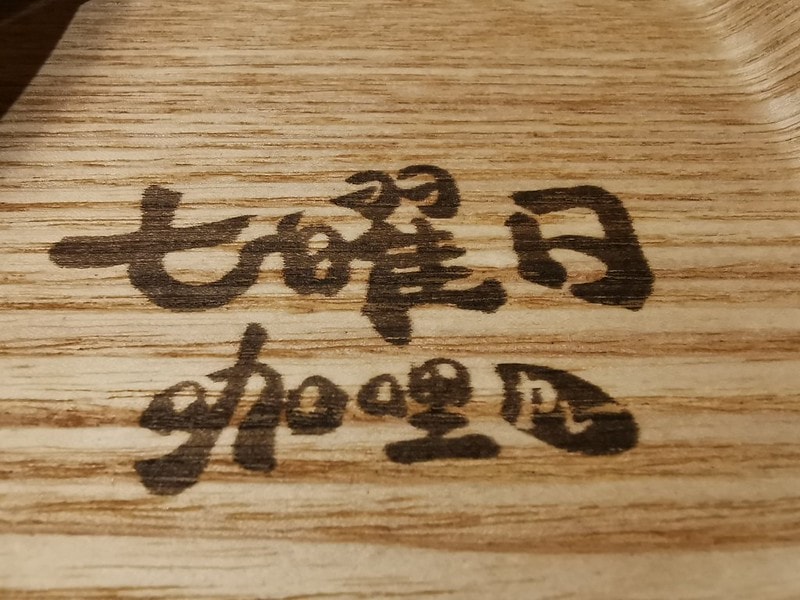 七曜日
咖哩